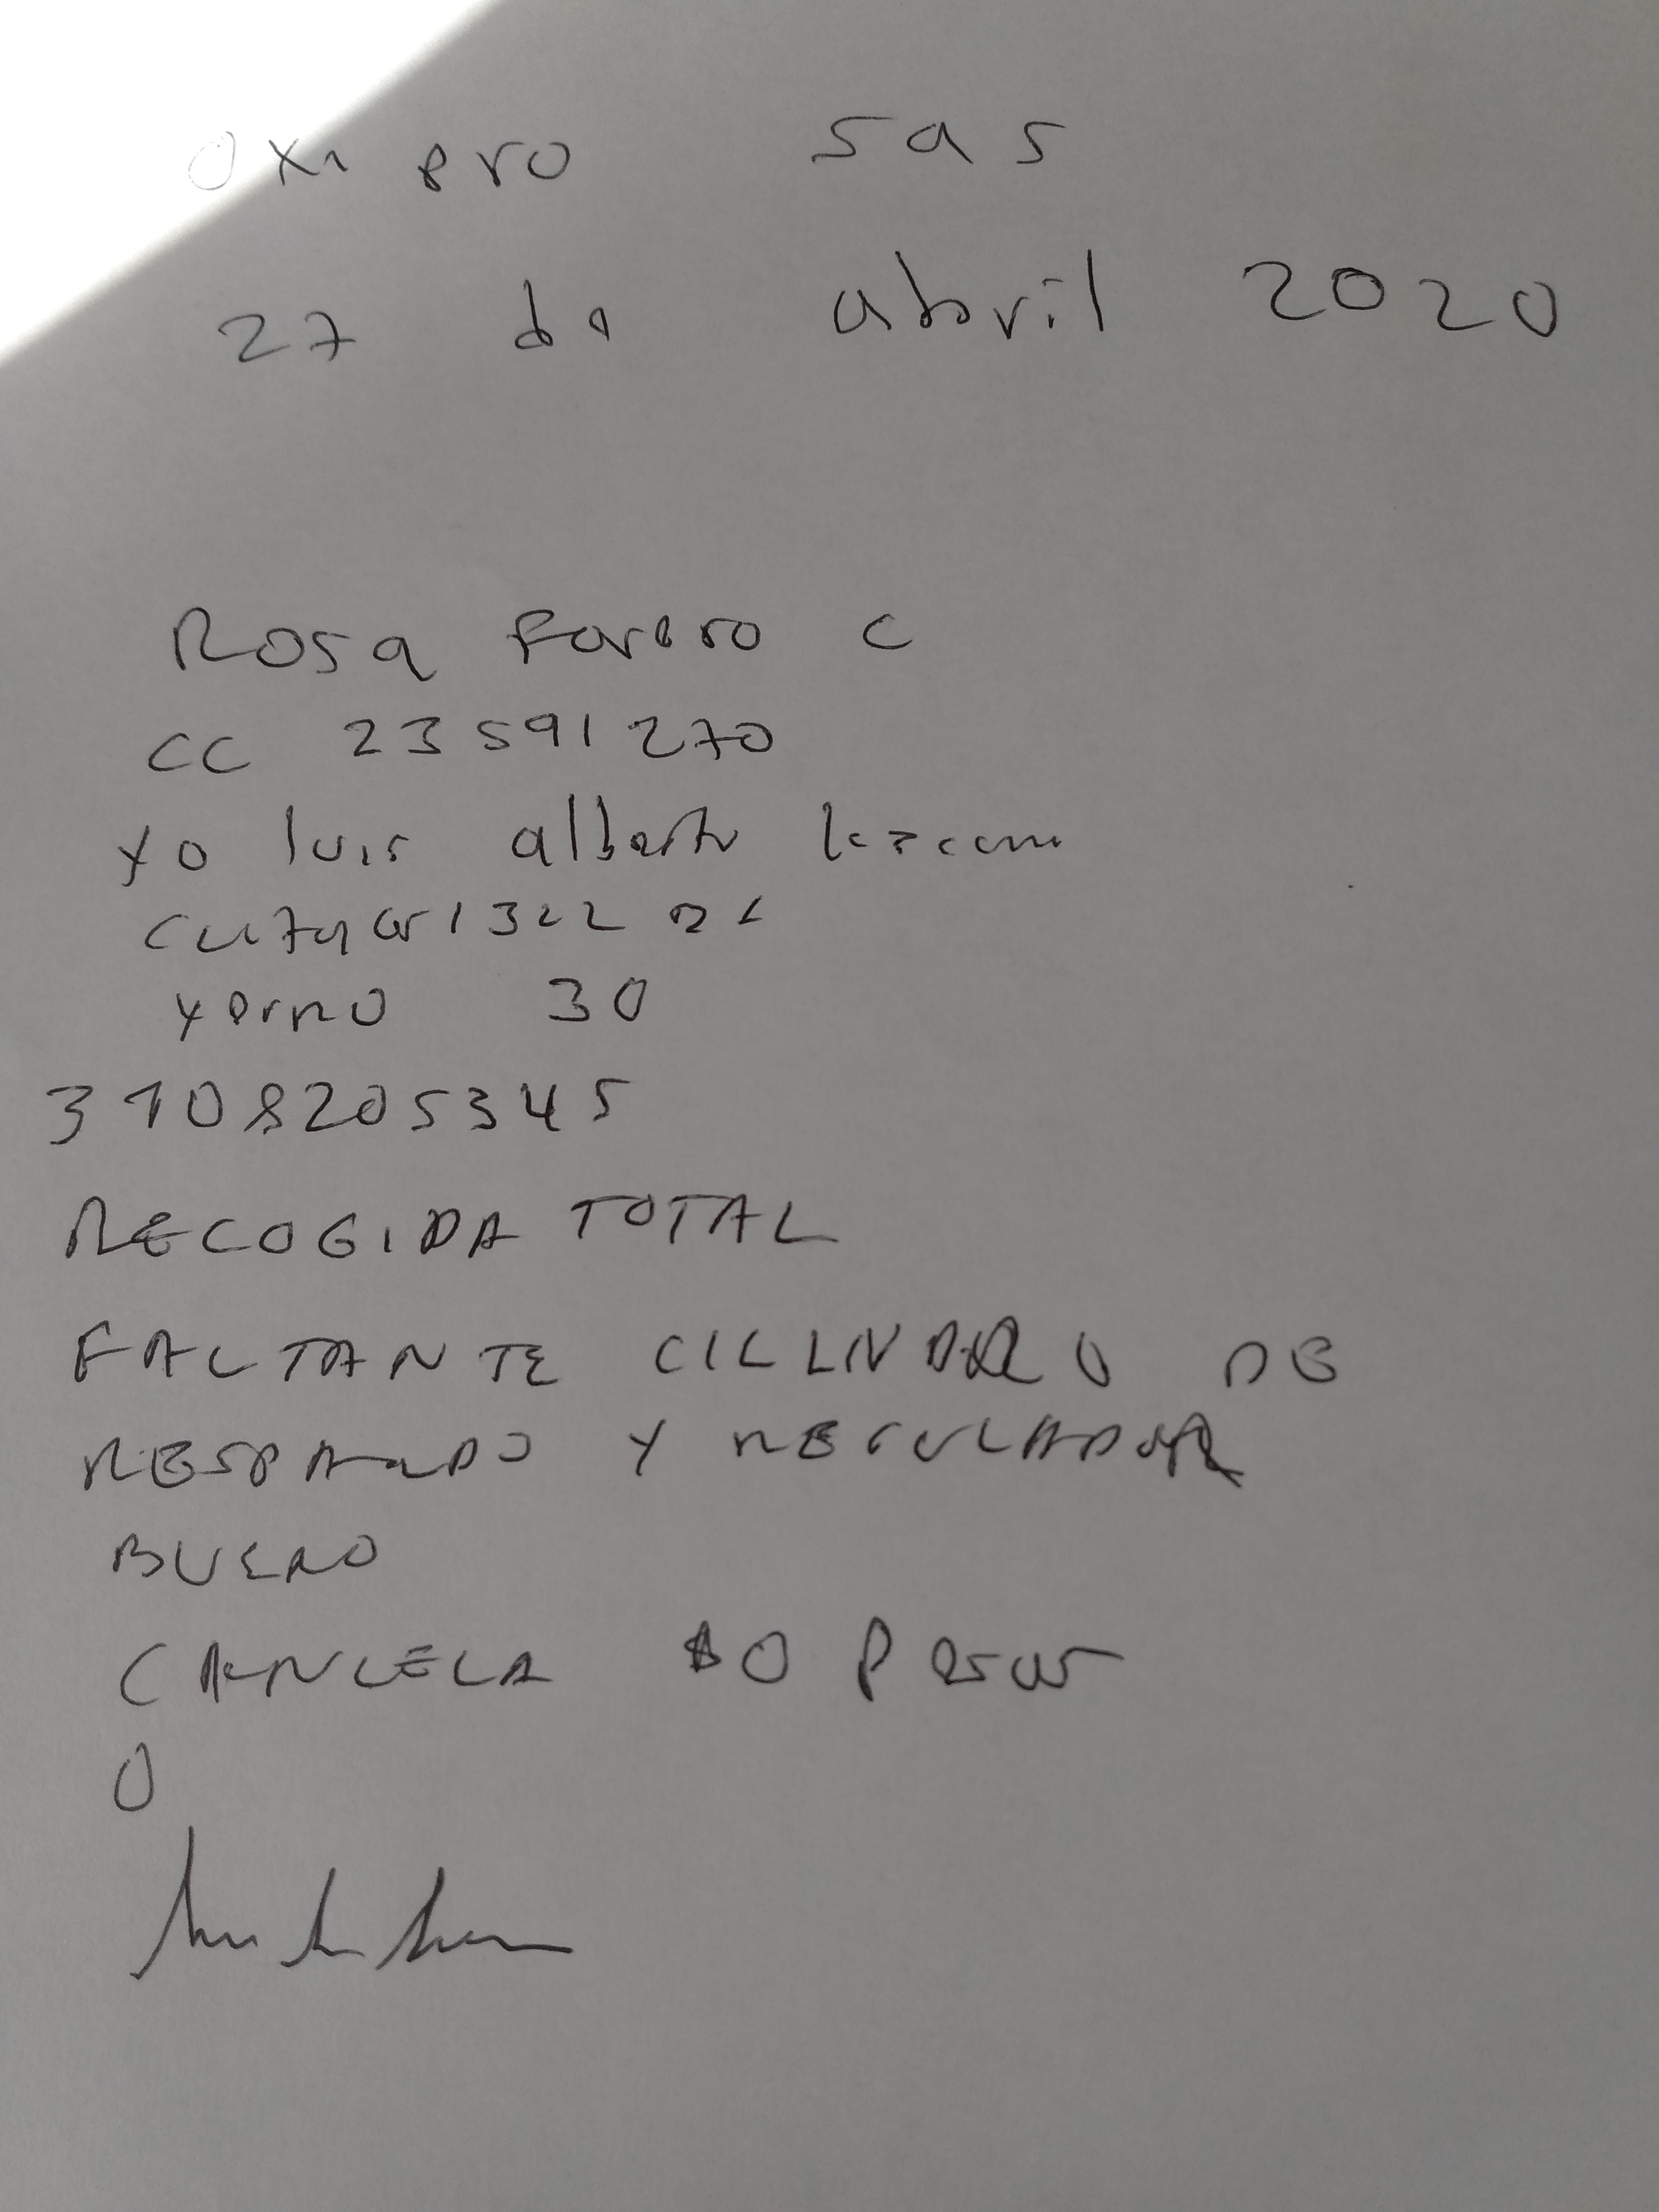 Oxi pro sas
27 de abril 2020
Rosa Forero c
CC 23591270
yo luis alberto
yerno 30
3108205345
RECOGIDA TOTAL
FALTANTE CILLINDRO DE
RESPALDO Y REGULADOR
BUENO
CANCELA $0 Pesos
0